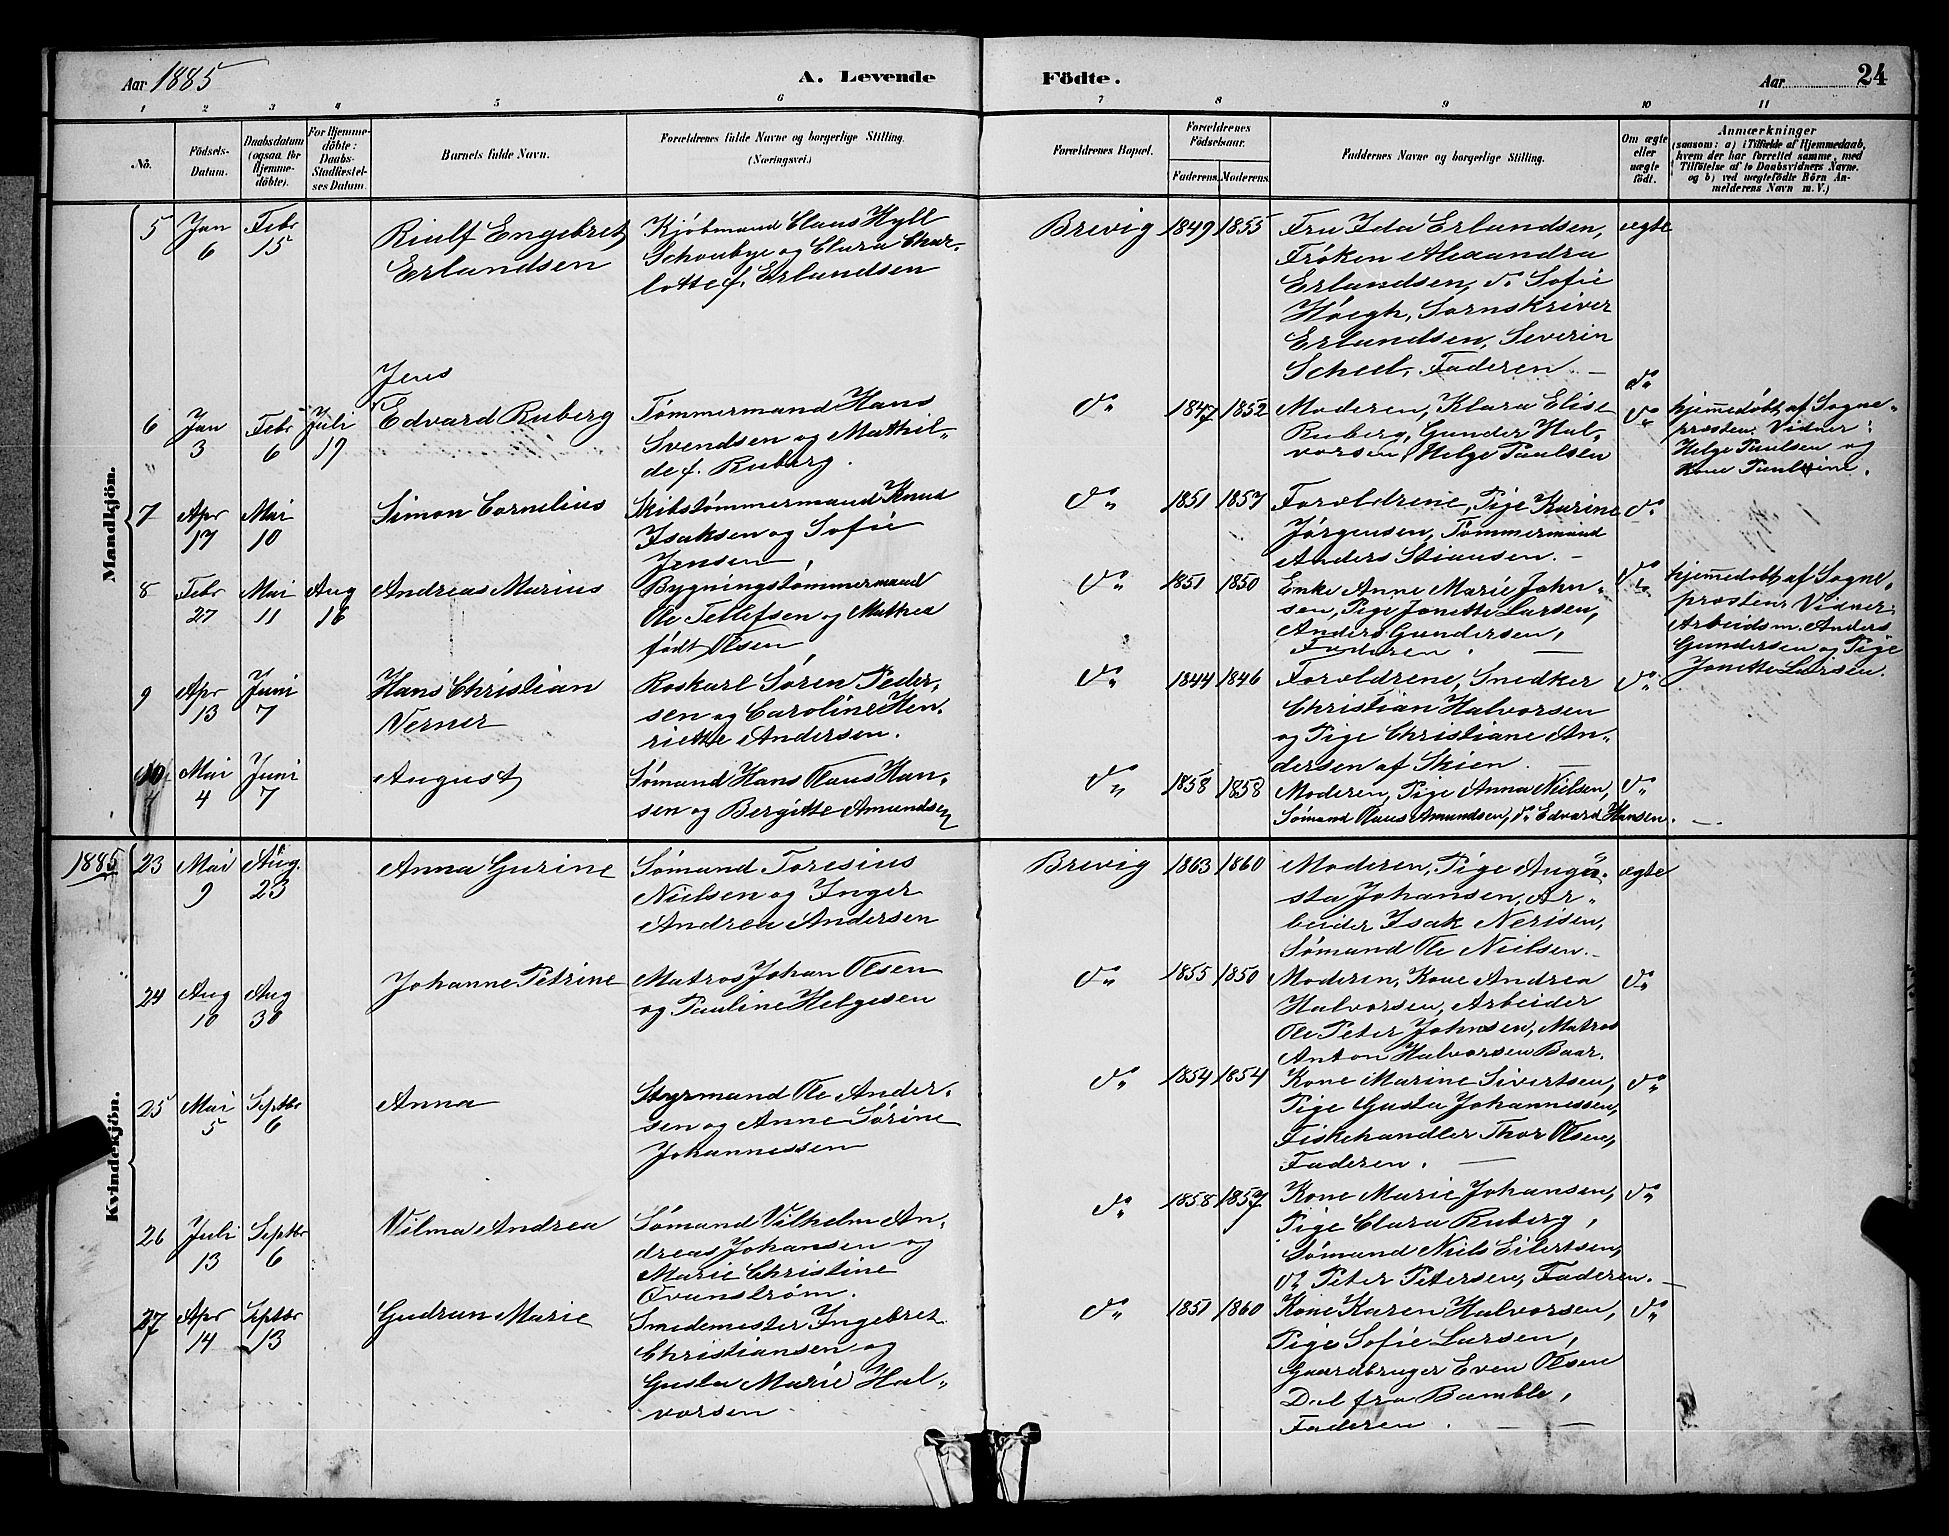 Aar 1885
A. Levende
Födte.
Aar 24
1 2 3 4 5 6 7 8 9 10 11
No.
Födsels-
Datum.
Daabsdatum
(ogsaa for
Hjemme-
döbte).
For Hjemme-
döbte:
Daabs-
Stadfæstel-
ses Datum.
Barnets fulde Navn.
Forældrenes fulde Navne og borgerlige Stilling.
(Næringsvei.)
Forældrenes Bopæl.
Forældrenes
Födselsaar.
Faderens. Moderens.
Faddernes Navne og borgerlige Stilling.
Om ægte
eller
uægte
födt.
Anmærkninger
(saasom: a) i Tilfælde af Hjemmedaab,
hvem der har forrettet samme, med
Tilföielse af to Daabsvidners Navne.
og b) ved uægtefödte Börn An-
melderens Navn m. V.)
Mandkjön.
5
Jan
6
Febr
15
Riulf Engebret
Erlandsen
Kjöbmand Claus Hyll
Schoubye og Clara Char-
lotte f. Erlandsen
Brevig
1849
1855
Fru Ida Erlandsen,
Fröken Alexandra
Erlandsen, do Sofie
Höegh, Sornskriver
Erlandsen, Severin
Scheel, Faderen. –
ægte
do
6
Jan
3
Febr
6
Juli
19
Jens
Edvard Ruberg
Tömmermand Hans
Svendsen og Mathil-
de f. Ruberg.
do
1847
1852
Moderen, Klara Elise
Ruberg, Gunder Hal-
vorsen, Helge Paulsen
do
hjemedöbt af Sogne-
præsten. Vidner:
Helge Paulsen og
Kone Pauline.
7
Apr
17
Mai
10
Simon Cornelius
Skibstömmermand Knud
Isaksen og Sofie
Jensen,
do
1851
1857
Forældrene, Pige Karine
Jörgensen, Tömmermand
Anders Stiansen. –
do
8
Febr
27
Mai
11
Aug
16
Andreas Marius
Bygningstömmermand
Ole Tellefsen og Mathea
født Olsen,
do
1851
1850
Enke Anne Marie John-
sen, Pige Jonette Larsen,
Anders Gundersen,
Faderen. –
do
hjemedöbt af Sogne-
præsten. Vidner:
Arbeidsm. Anders
Gundersen og Pige
Jonette Larsen.
9
Apr
13
Juni
7
Hans Christian
Verner
Roskarl Sören Peder-
sen og Caroline Hen-
riette Andersen.
do
1844
1846
Forældrene, Snedker
Christian Halvorsen
og Pige Christiane An-
dersen af Skien. –
do
10
Mai
4
Juni
7
August
Sömand Hans Olaus Han-
sen og Bergitte Amundsen
do
1858
1858
Moderen, Pige Anna Nielsen,
Sömand Olaus Amundsen, do Edvard Hansen. –
do
Kvindekjön.
1885
23
Mai
9
Aug.
23
Anna Gurine
Sömand Toresius
Nielsen og Inger
Andrea Andersen
Brevig
1863
1860
Moderen, Pige Augu-
sta Johansen, Ar-
beider Isak Nerisen,
Sömand Ole Nielsen. –
ægte
24
Aug
10
Aug
30
Johanne Petrine
Matros Johan Olsen
og Pauline Helgesen
do
1855
1850
Moderen, Kone Andrea
Halvorsen, Arbeider
Ole Peter Johnsen, Matros
Anton Halvorsen Baar.
do
25
Mai
5
Septbr
6
Anna
Styrmand Ole Ander-
sen og Anne Sörine
Johannessen
do
1854
1854
Kone Marine Sivertsen,
Pige Gusta Johannessen,
Fiskehandler Thor Olsen,
Faderen. –
do
26
Juli
13
Septbr
6
Vilma Andrea
Sömand Vilhelm An-
dreas Johansen og
Marie Christine
Qvanström.
do
1858
1857
Kone Marie Johansen,
Pige Clara Ruberg,
Sömand Niels Eilertsen,
do Peter Petersen, Faderen. –
do
27
Apr
14
Septbr
13
Gudrun Marie
Smedemester Ingebret
Christiansen og
Gusta Marie Hal-
vorsen
do
1851
1860
Kone Karen Halvorsen,
Pige Sofie Larsen,
Gaardbruger Even Olsen
Dal fra Bamble,
Faderen. – –
do